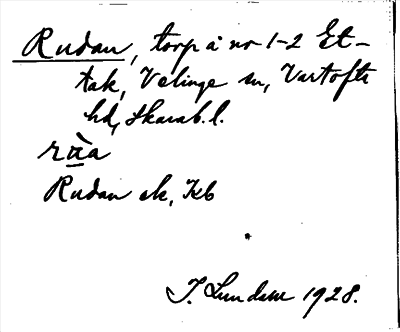 Rudan, torp å nr 1-2 Et-
tak, Velinge sn, Vartofta
hd, Skarab. l.
rùa
Rudan ek, Kb
I. Lundin 1928.